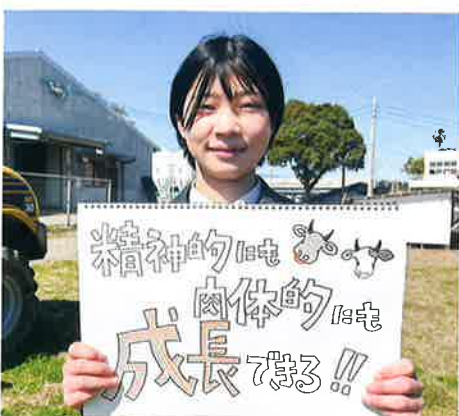 精神的にも
肉体的にも
成長できる!!